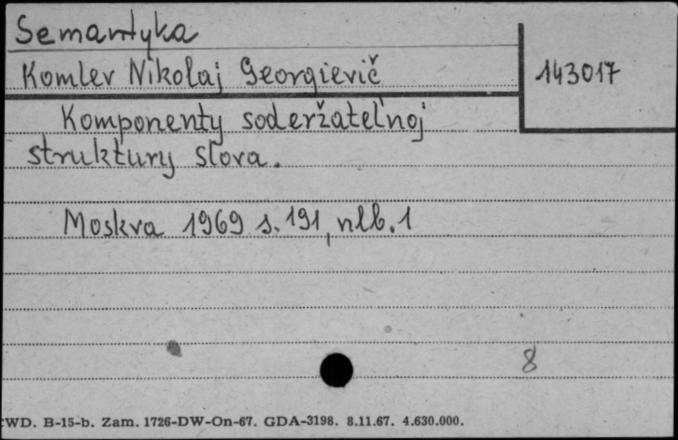 Semantyka
Komlev Nikolaj Georgievič
143017
Komponenty soderžatel'noj
struktury slova.
Moskva 1969 s. 191, nlb. 1
8
WD. B-15-b. Zam. 1726-DW-On-67. GDA-3198. 8.11.67. 4.630.000.